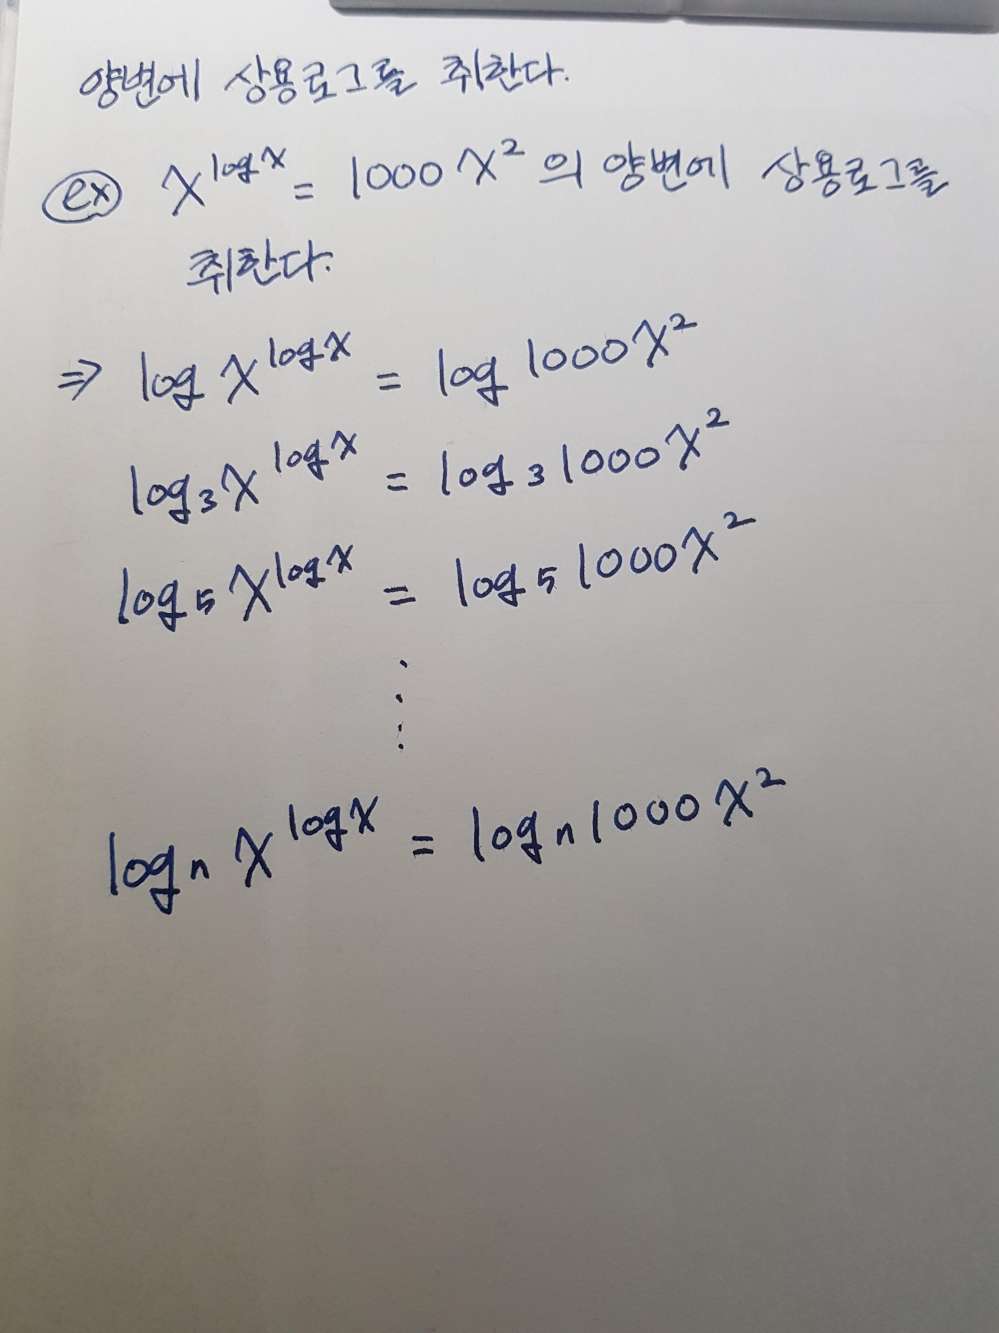 양변에 상용로그를 취한다.
ex x^{log x} = 1000x² 의 양변에 상용로그를
취한다.
⇒ log x^{log x} = log 1000x²
log₃ x^{log x} = log₃ 1000x²
log₅ x^{log x} = log₅ 1000x²
⋮
logₙ x^{log x} = logₙ 1000x²